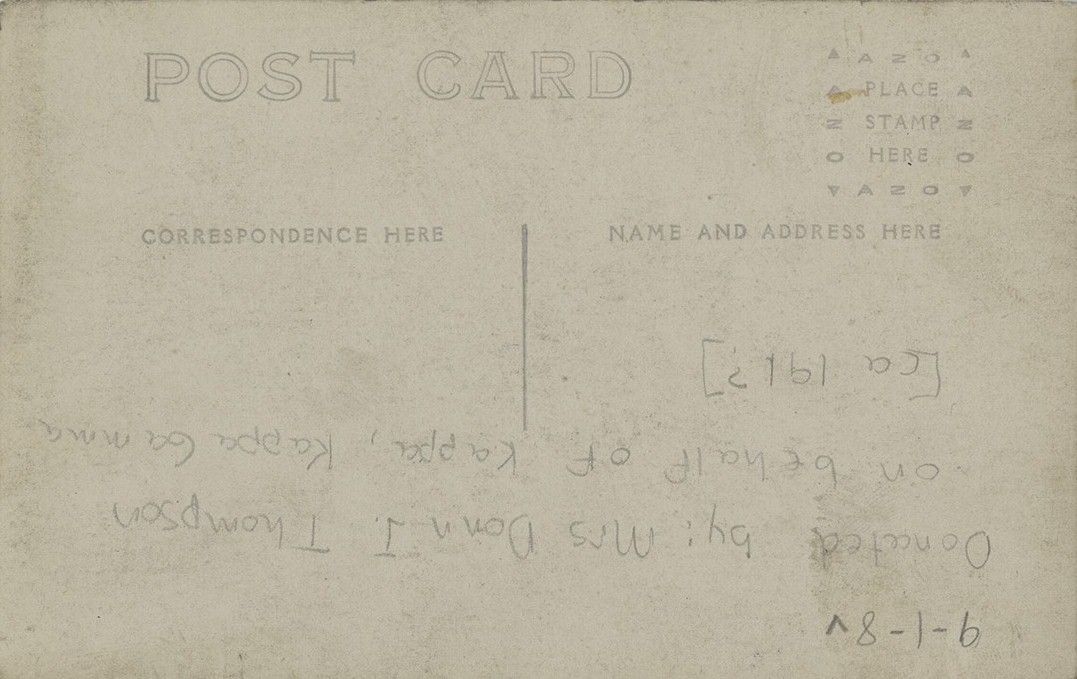 POST CARD
AZO
A PLACE A
Z STAMP Z
O HERE O
AZO
CORRESPONDENCE HERE
NAME AND ADDRESS HERE
9-1-8v
Donated by: Mrs Donn J. Thompson
on behalf of Kappa, Kappa Gamma
[ca 191?]